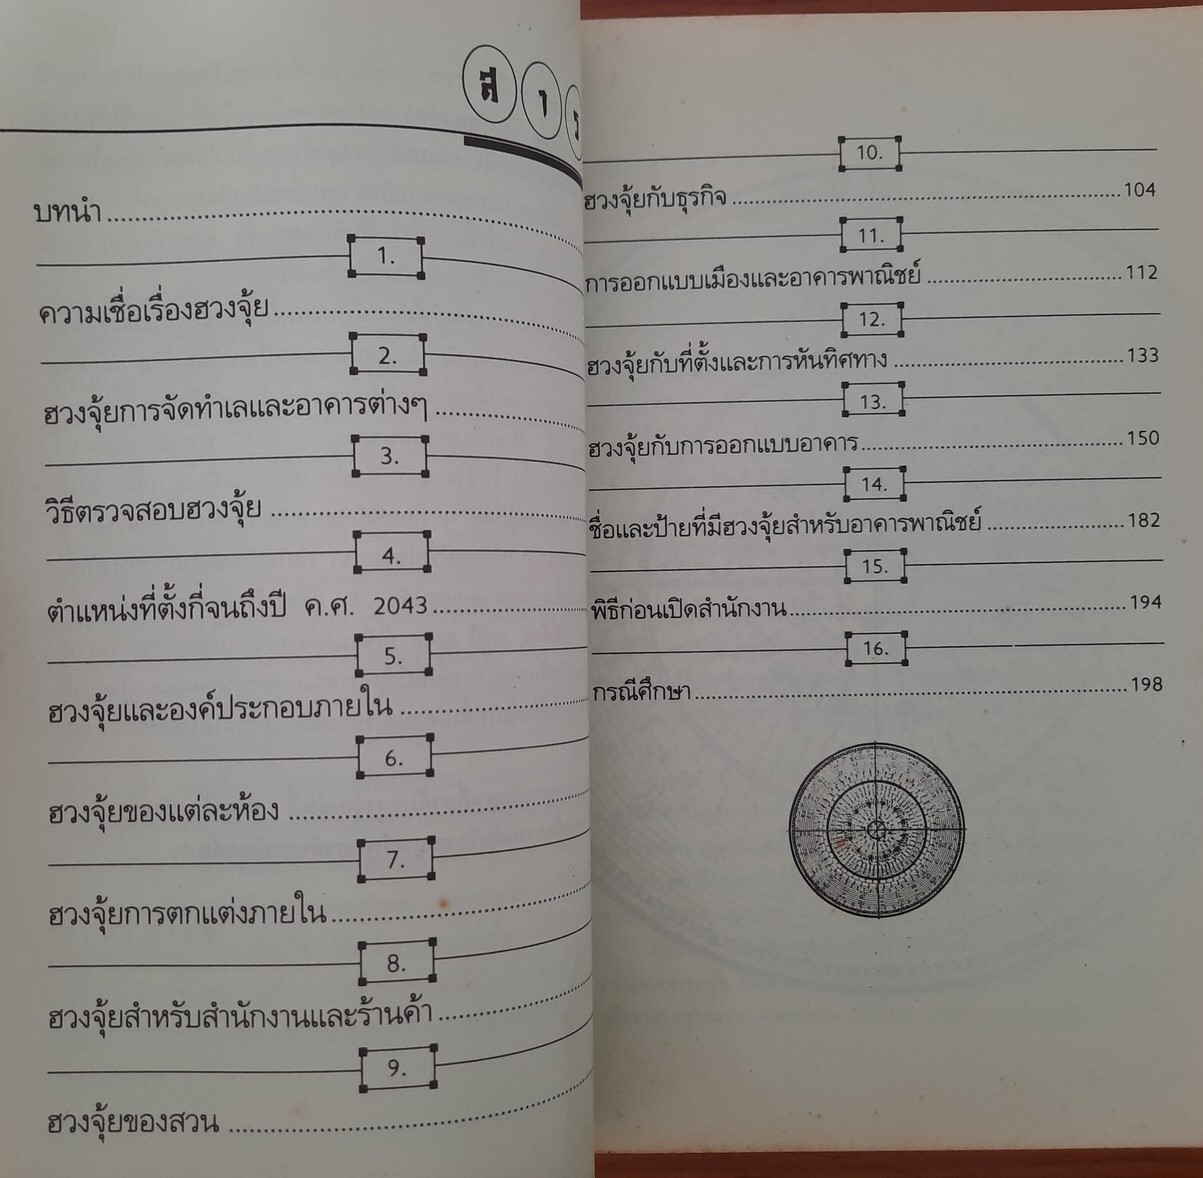 ส า ร
บทนำ
1.
ความเชื่อเรื่องฮวงจุ้ย
2.
ฮวงจุ้ยการจัดทำเลและอาคารต่างๆ
3.
วิธีตรวจสอบฮวงจุ้ย
4.
ตำแหน่งที่ตั้งกี่จนถึงปี ค.ศ. 2043
5.
ฮวงจุ้ยและองค์ประกอบภายใน
6.
ฮวงจุ้ยของแต่ละห้อง
7.
ฮวงจุ้ยการตกแต่งภายใน
8.
ฮวงจุ้ยสำหรับสำนักงานและร้านค้า
9.
ฮวงจุ้ยของสวน
10.
ฮวงจุ้ยกับธุรกิจ 104
11.
การออกแบบเมืองและอาคารพาณิชย์ 112
12.
ฮวงจุ้ยกับที่ตั้งและการหันทิศทาง 133
13.
ฮวงจุ้ยกับการออกแบบอาคาร 150
14.
ชื่อและป้ายที่มีฮวงจุ้ยสำหรับอาคารพาณิชย์ 182
15.
พิธีก่อนเปิดสำนักงาน 194
16.
กรณีศึกษา 198